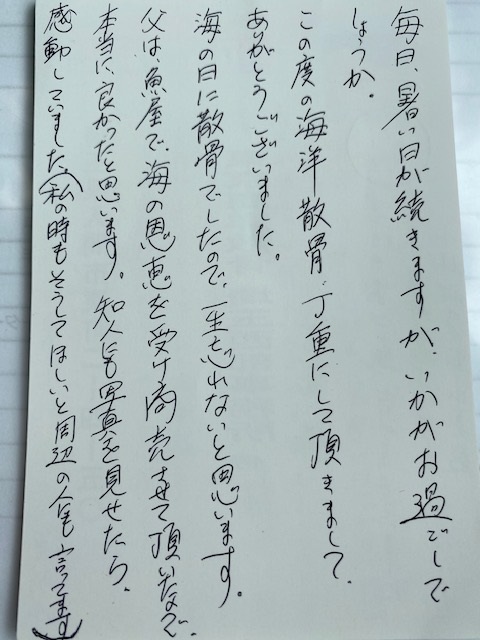 毎日、暑い日が続きますが、いかがお過ごしで
しょうか。
この度の海洋散骨、丁重にして頂きまして、
ありがとうございました。
海の日に散骨でしたので、一生忘れないと思います。
父は、魚屋で、海の恩恵を受け商売させて頂いたので、
本当に、良かったと思います。知人にも写真を見せたら、
感動していました。(私の時もそうしてほしいと周辺の人も言ってます)